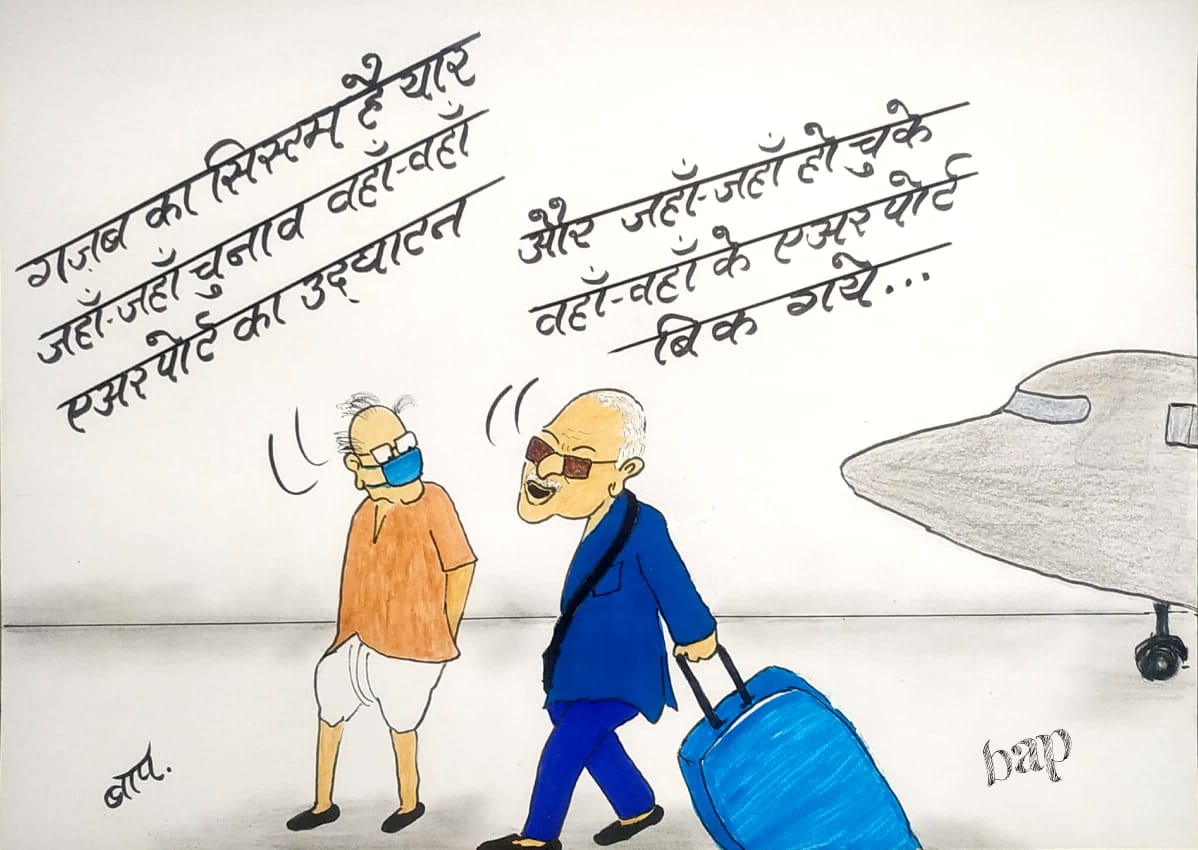 गज़ब का सिस्टम है यार
जहाँ-जहाँ चुनाव वहाँ-वहाँ
एअरपोर्ट का उद्घाटन
और जहाँ-जहाँ हो चुके
वहाँ-वहाँ के एअरपोर्ट
बिक गये...
बाप.
bap